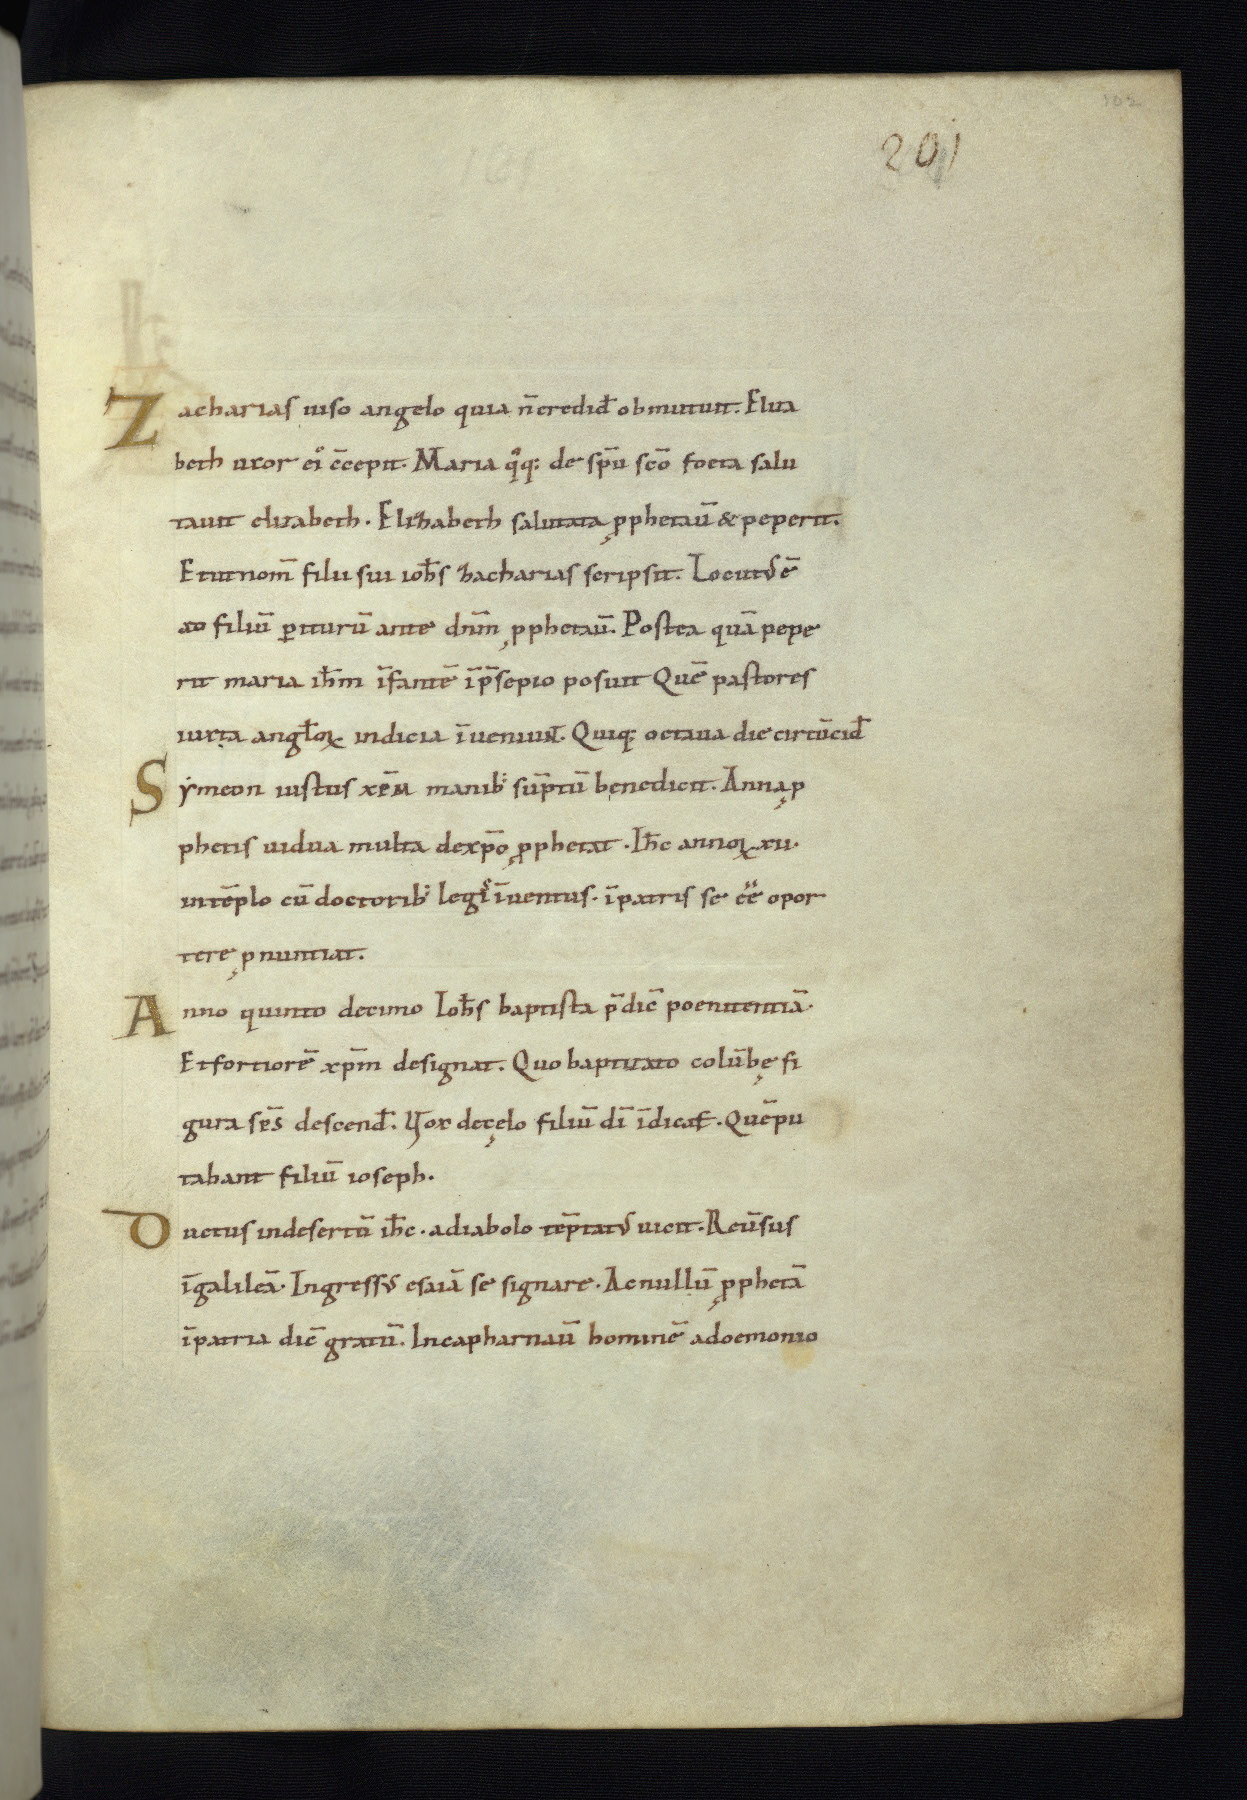 102
201
Zacharias uiso angelo quia n̄ credid̄ obmutuit. Eliza
beth uxor ei᷒ c̄cepit. Maria q̊q: de sp̄u sc̄o foeta salu
tauit elizabeth. Elizhabeth salutata ꝓphetau̅ & peperit.
Et ut nom̄ filii sui ioh̄s zhacharias scripsit. Locut᷒ ē
ac filiū ꝑiturū ante dn̄m ꝓphetau̅. Postea quā pepe
rit maria ih̄m īfantē īp̄sepio posuit Quē pastores
iuxta angl̄oꝝ indicia īueniunt. Quiq; octaua die circūcid̄
Symeon iustus xp̄m manib; sūptū benedicit. Anna ꝓ
phetis uidua multa de xp̄o ꝓphetat. Ih̄c annoꝝ xii.
in tēplo cū doctorib; legis īuentus. ī patris se ēē opor
tere ꝓnuntiat.
Anno quinto decimo Ioh̄s baptista p̄dic̄ poenitentiā.
Et fortiorē xp̄m designat. Quo baptizato colūbę fi
gura sp̄s descend̄. Uox de cęlo filiū dī īdicat. Quē pu
tabant filiū ioseph.
Ductus in desertū ih̄c. a diabolo tēptat᷒ uicit. Reūsus
ī galileā. Ingress᷒ esaiā se signare. Ac nullū ꝓphetā
ī patria dic̄ gratū. In capharnau̅ hominē a doemonio